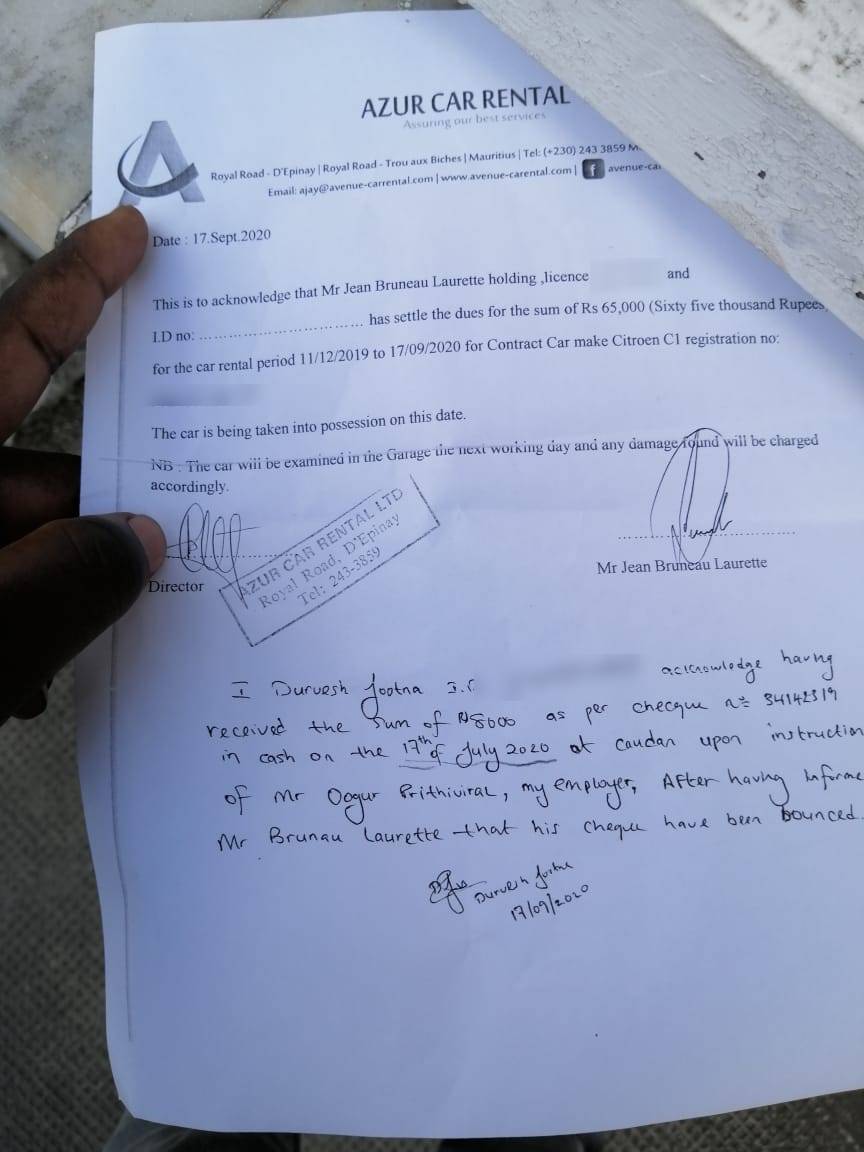 AZUR CAR RENTAL
Assuring our best services
Royal Road - D'Epinay | Royal Road - Trou aux Biches | Mauritius | Tel: (+230) 243 3859 M
Email: ajay@avenue-carrental.com | www.avenue-carental.com | f avenue-ca
Date : 17.Sept.2020
This is to acknowledge that Mr Jean Bruneau Laurette holding ,licence and
I.D no: ................................ has settle the dues for the sum of Rs 65,000 (Sixty five thousand Rupees
for the car rental period 11/12/2019 to 17/09/2020 for Contract Car make Citroen C1 registration no:
The car is being taken into possession on this date.
NB : The car will be examined in the Garage the next working day and any damage found will be charged
accordingly.
AZUR CAR RENTAL LTD
Royal Road, D'Epinay
Tel: 243-3859
Director
Mr Jean Bruneau Laurette
I Duruesh Jootna I.C acknowledge having
received the sum of Rs8000 as per checque n° 34142319
in cash on the 17th of July 2020 at caudan upon instruction
of Mr Oogur Prithiviral, my employer, After having informe
Mr Brunau Laurette that his cheque have been bounced.
Duruesh Jootna
17/09/2020